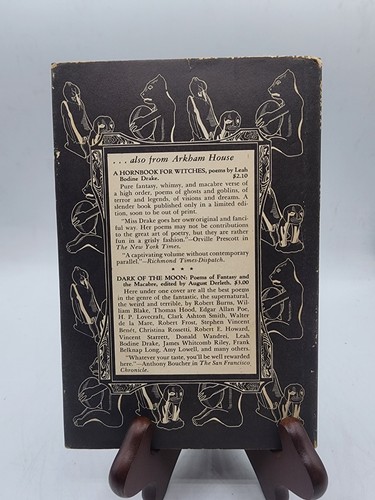 . . . also from Arkham House
A HORNBOOK FOR WITCHES, poems by Leah
Bodine Drake. $2.10
Pure fantasy, whimsy, and macabre verse of
a high order, poems of ghosts and goblins, of
terror and legends, of visions and dreams. A
slender book published only in a limited edi-
tion, soon to be out of print.
"Miss Drake goes her own original and fanci-
ful way. Her poems may not be contributions
to the great art of poetry, but they are rather
fun in a grisly fashion."—Orville Prescott in
The New York Times.
"A captivating volume without contemporary
parallel."—Richmond Times-Dispatch.
* * *
DARK OF THE MOON: Poems of Fantasy and
the Macabre, edited by August Derleth. $3.00
Here under one cover are all the best poems
in the genre of the fantastic, the supernatural,
the weird and terrible, by Robert Burns, Wil-
liam Blake, Thomas Hood, Edgar Allan Poe,
H. P. Lovecraft, Clark Ashton Smith, Walter
de la Mare, Robert Frost, Stephen Vincent
Benét, Christina Rossetti, Robert E. Howard,
Vincent Starrett, Donald Wandrei, Leah
Bodine Drake, James Whitcomb Riley, Frank
Belknap Long, Amy Lowell, and many others.
"Whatever your taste, you'll be well rewarded
here."—Anthony Boucher in The San Francisco
Chronicle.